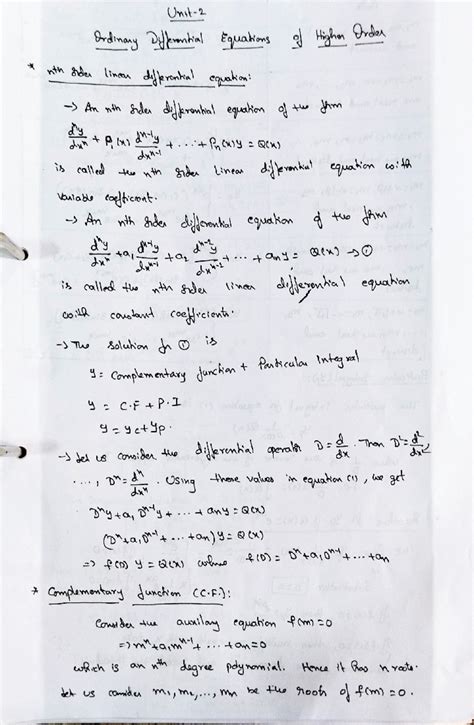 Unit-2
Ordinary Differential Equations of Higher Order
* nth order linear differential equation:
→ An nth order differential equation of the form
dⁿy/dxⁿ + P₁(x) dⁿ⁻¹y/dxⁿ⁻¹ + ... + Pₙ(x)y = Q(x)
is called the nth order linear differential equation with
variable coefficient.
→ An nth order differential equation of the form
dⁿy/dxⁿ + a₁ dⁿ⁻¹y/dxⁿ⁻¹ + a₂ dⁿ⁻²y/dxⁿ⁻² + ... + aₙy = Q(x) → ①
is called the nth order linear differential equation
with constant coefficients.
→ The solution for ① is
y = Complementary function + Particular Integral
y = C.F + P.I
y = yc + yp.
→ let us consider the differential operator D = d/dx. Then D² = d²/dx²
..., Dⁿ = dⁿ/dxⁿ. Using these values in equation (1), we get
Dⁿy + a₁Dⁿ⁻¹y + ... + aₙy = Q(x)
(Dⁿ + a₁Dⁿ⁻¹ + ... + aₙ)y = Q(x)
⇒ f(D) y = Q(x) where f(D) = Dⁿ + a₁Dⁿ⁻¹ + ... + aₙ
* Complementary function (C.F.):
Consider the auxilary equation f(m) = 0
⇒ mⁿ + a₁mⁿ⁻¹ + ... + aₙ = 0
which is an nth degree polynomial. Hence it has n roots.
let us consider m₁, m₂, ..., mₙ be the roots of f(m) = 0.